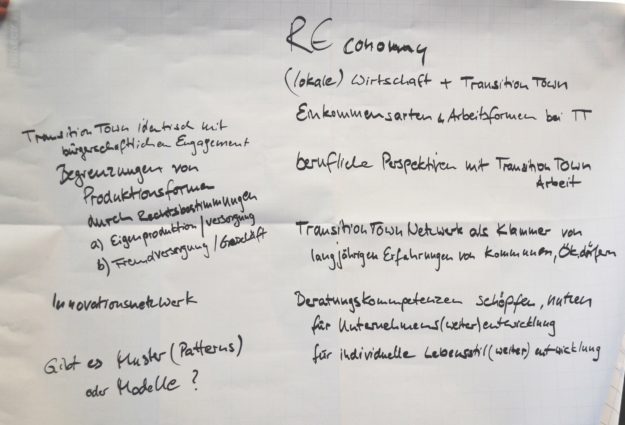 RE conomy
(lokale) Wirtschaft + Transition Town
Einkommensarten & Arbeitsformen bei TT
berufliche Perspektiven mit Transition Town
Arbeit
Transition Town Netzwerk als Klammer von
langjährigen Erfahrungen von Kommunen, Ökodörfern
Beratungskompetenzen schöpfen, nutzen
für Unternehmens(weiter)entwicklung
für individuelle Lebensstil(weiter)entwicklung
Transition Town identisch mit
bürgerschaftlichen Engagement
Begrenzungen von
Produktionsformen
durch Rechtsbestimmungen
a) Eigenproduktion/versorgung
b) Fremdversorgung/Geschäft
Innovationsnetzwerk
Gibt es Muster (Patterns)
oder Modelle?